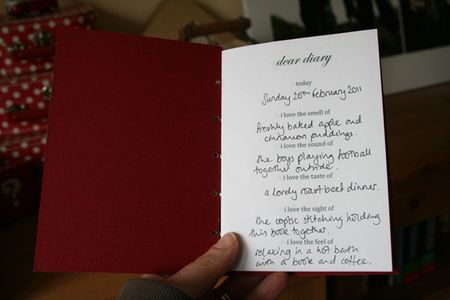 dear diary
today
Sunday 26th February 2011
i love the smell of
freshly baked apple and
cinnamon puddings.
i love the sound of
the boys playing football
together outside.
i love the taste of
a lovely roast beef dinner.
i love the sight of
the coptic stitching holding
this book together.
i love the feel of
relaxing in a hot bath
with a book and coffee.